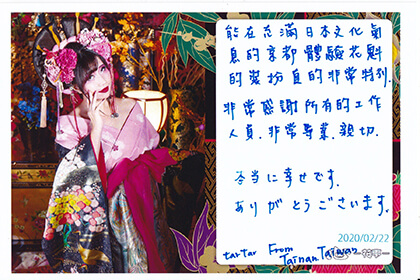 能在充滿日本文化氣
息的京都體驗花魁
的裝扮真的非常特別.
非常感謝所有的工作
人員.非常專業.親切.
本当に幸せです.
ありがとうございます.
2020/02/22
tartar From
Tainan Taiwan